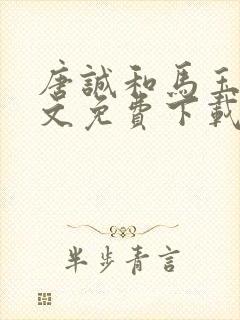 唐誠和馬玉
文免費下載
半步青言